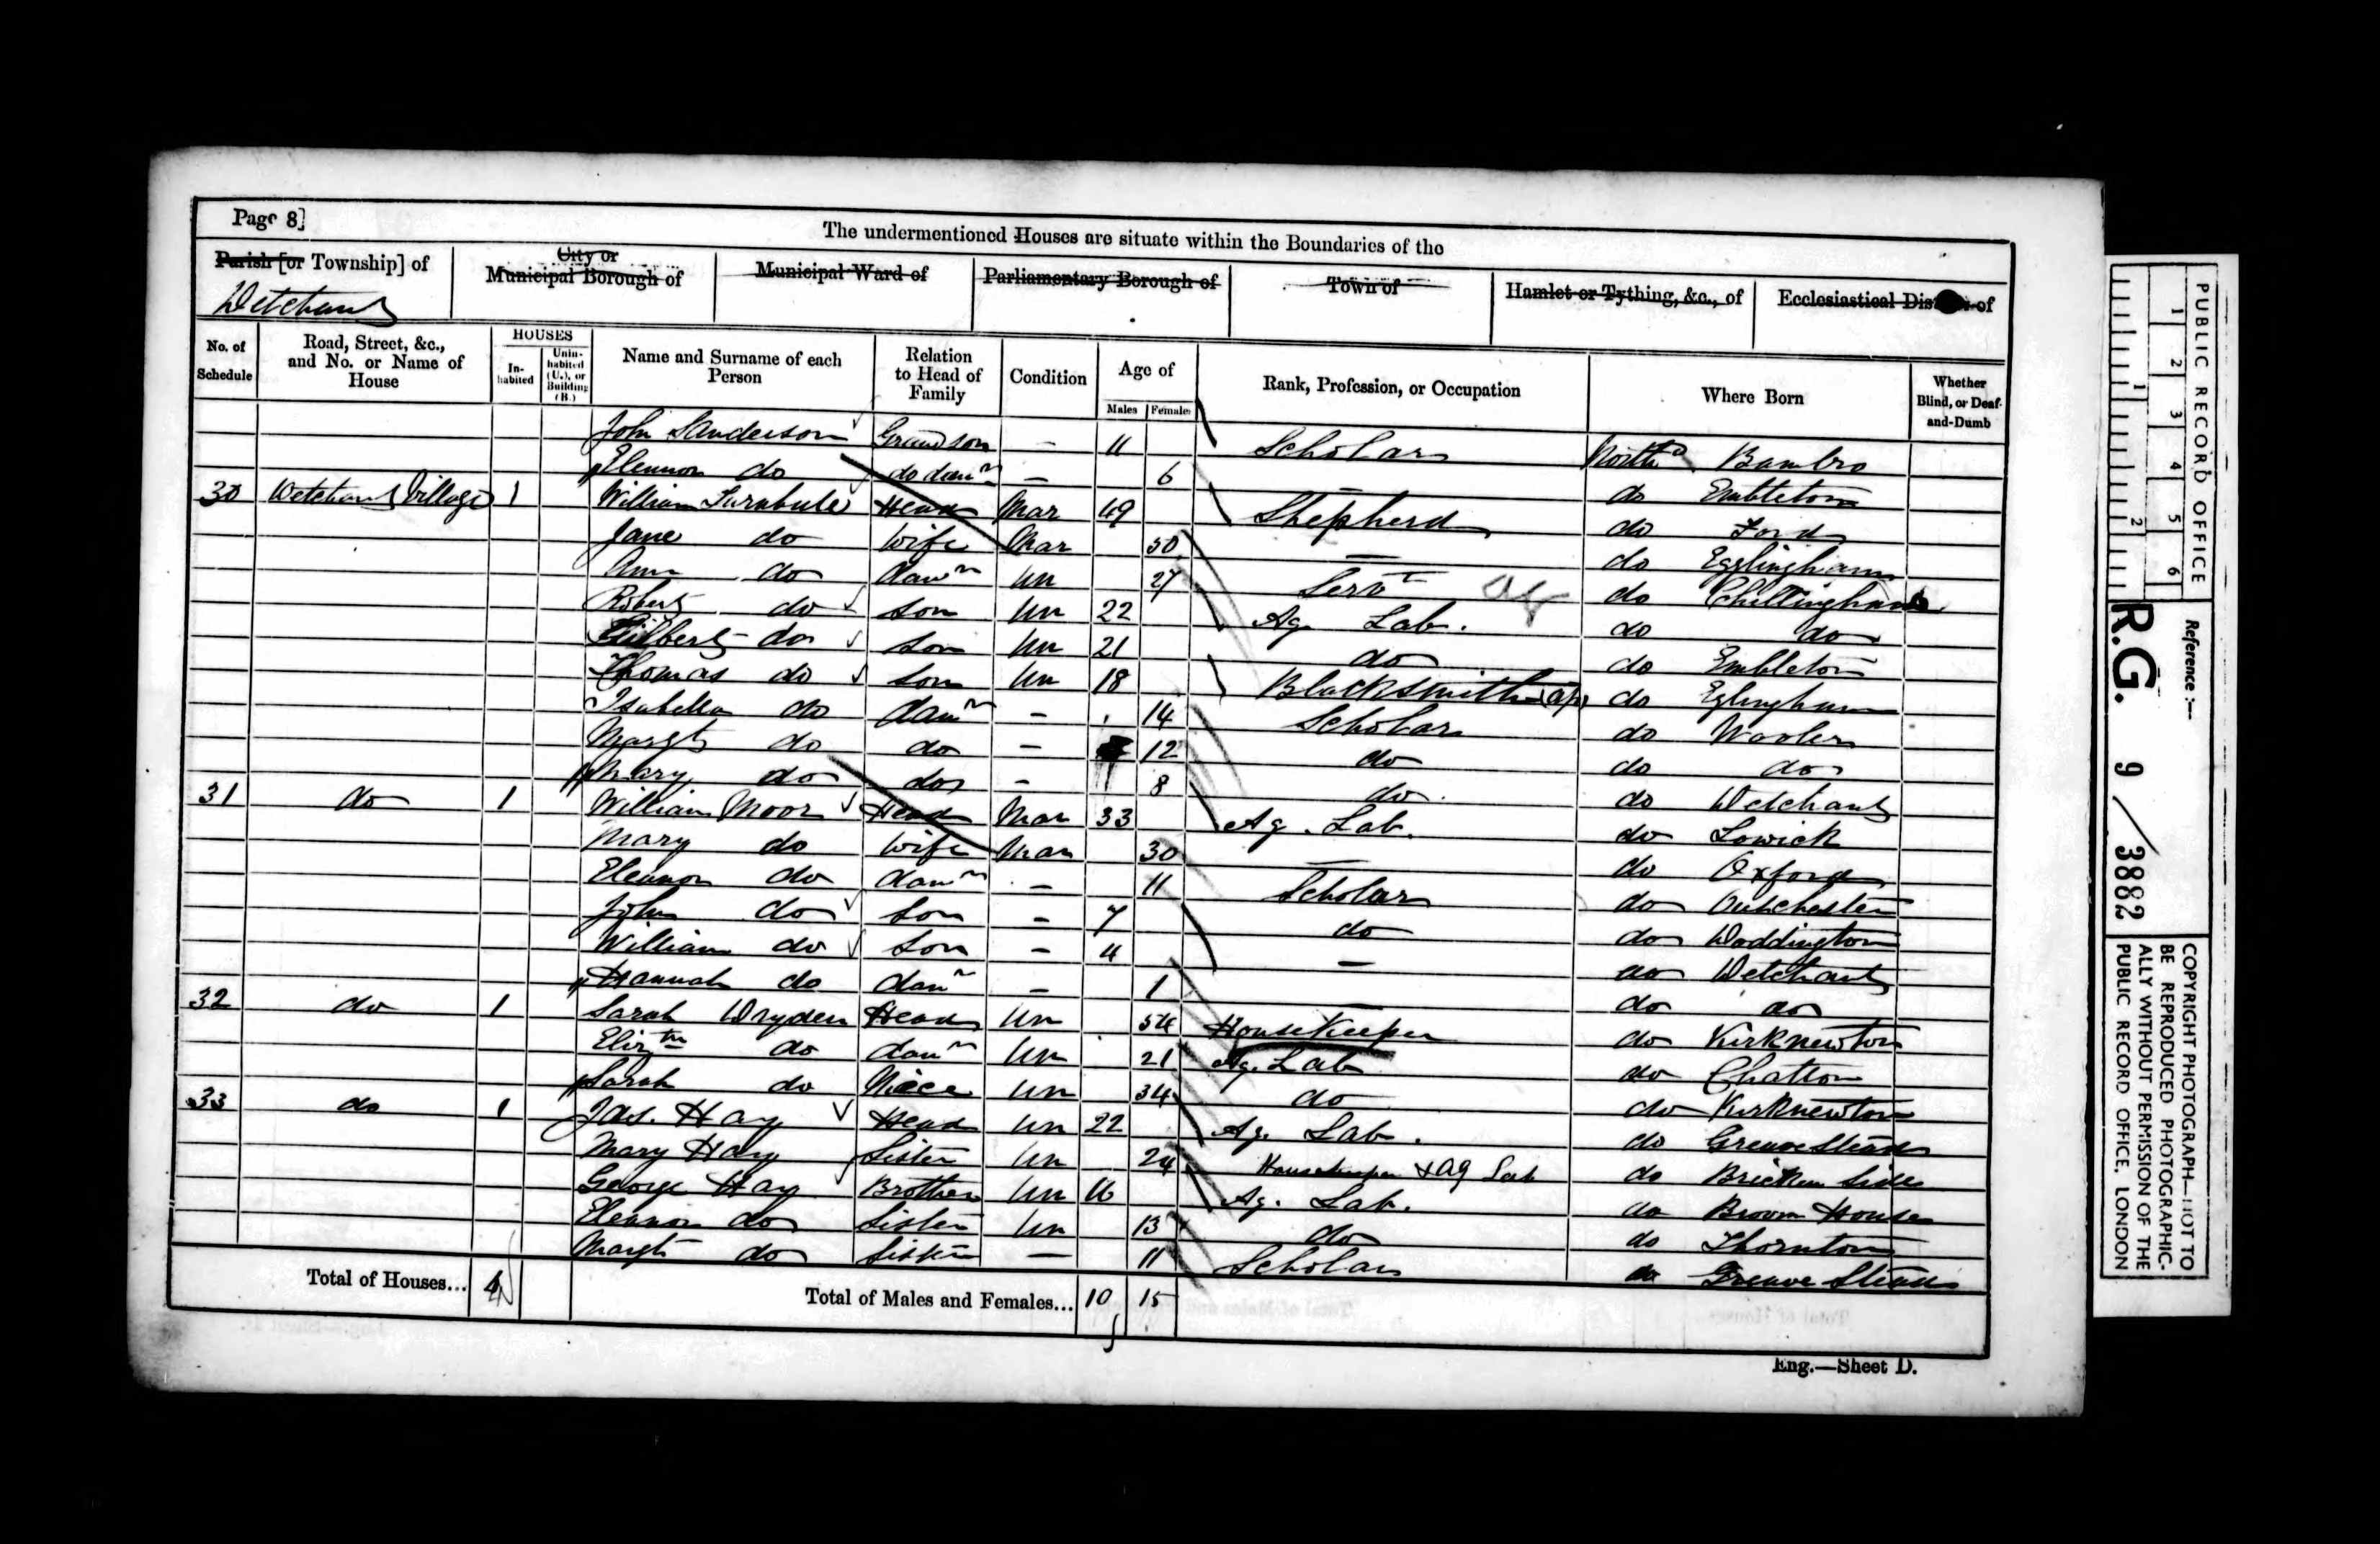 Page 8]
The undermentioned Houses are situate within the Boundaries of the
Parish [or Township] of
City or Municipal Borough of
Municipal Ward of
Parliamentary Borough of
Town of
Hamlet or Tything, &c., of
Ecclesiastical District of
Detchant
No. of Schedule
Road, Street, &c., and No. or Name of House
HOUSES
In-habited
Unin-habited (U.), or Building (B.)
Name and Surname of each Person
Relation to Head of Family
Condition
Age of
Males
Females
Rank, Profession, or Occupation
Where Born
Whether Blind, or Deaf-and-Dumb
John Sanderson Grandson — 11 Scholar North'd Bambro
Eleanor do do daur — 6 — do Embleton
30 Detchant Village 1 William Turnbull Head Mar 49 Shepherd do Ford
Jane do Wife Mar 50 — do Egglingham
Ann do daur Un 27 Servt do Chillingham
Robert do son Un 22 Ag. Lab. do do
Gilbert do son Un 21 do do Embleton
Thomas do son Un 18 Blacksmith (ap) do Eglingham
Isabella do daur — 14 Scholar do Wooler
Margt do do — 12 do do do
Mary do do — 8 do do Detchant
31 do 1 William Moor Head Mar 33 Ag. Lab. do Lowick
Mary do Wife Mar 30 — do Oxford
Eleanor do daur — 11 Scholar do Outchester
John do son — 7 do do Doddington
William do son — 4 — do Detchant
Hannah do daur — 1 — do do
32 do 1 Sarah Dryden Head Un 54 Housekeeper do Kirknewton
Elizth do daur Un 21 Ag. Lab do Chatton
Sarah do Niece Un 34 do do Kirknewton
33 do 1 Jas. Hay Head Un 22 Ag. Lab. do
Mary Hay Sister Un 24 Housekeeper & Ag Lab do
George Hay Brother Un 16 Ag. Lab. do Brown House
Eleanor do Sister Un 13 do do Thornton
Margt do Sister — 11 Scholar do
Total of Houses... 4
Total of Males and Females... 10 15
Eng.—Sheet D.
PUBLIC RECORD OFFICE
1 2 3 4 5 6
1 2
Reference :—
R.G. 9 / 3882
COPYRIGHT PHOTOGRAPH—NOT TO BE REPRODUCED PHOTOGRAPHIC-ALLY WITHOUT PERMISSION OF THE PUBLIC RECORD OFFICE, LONDON